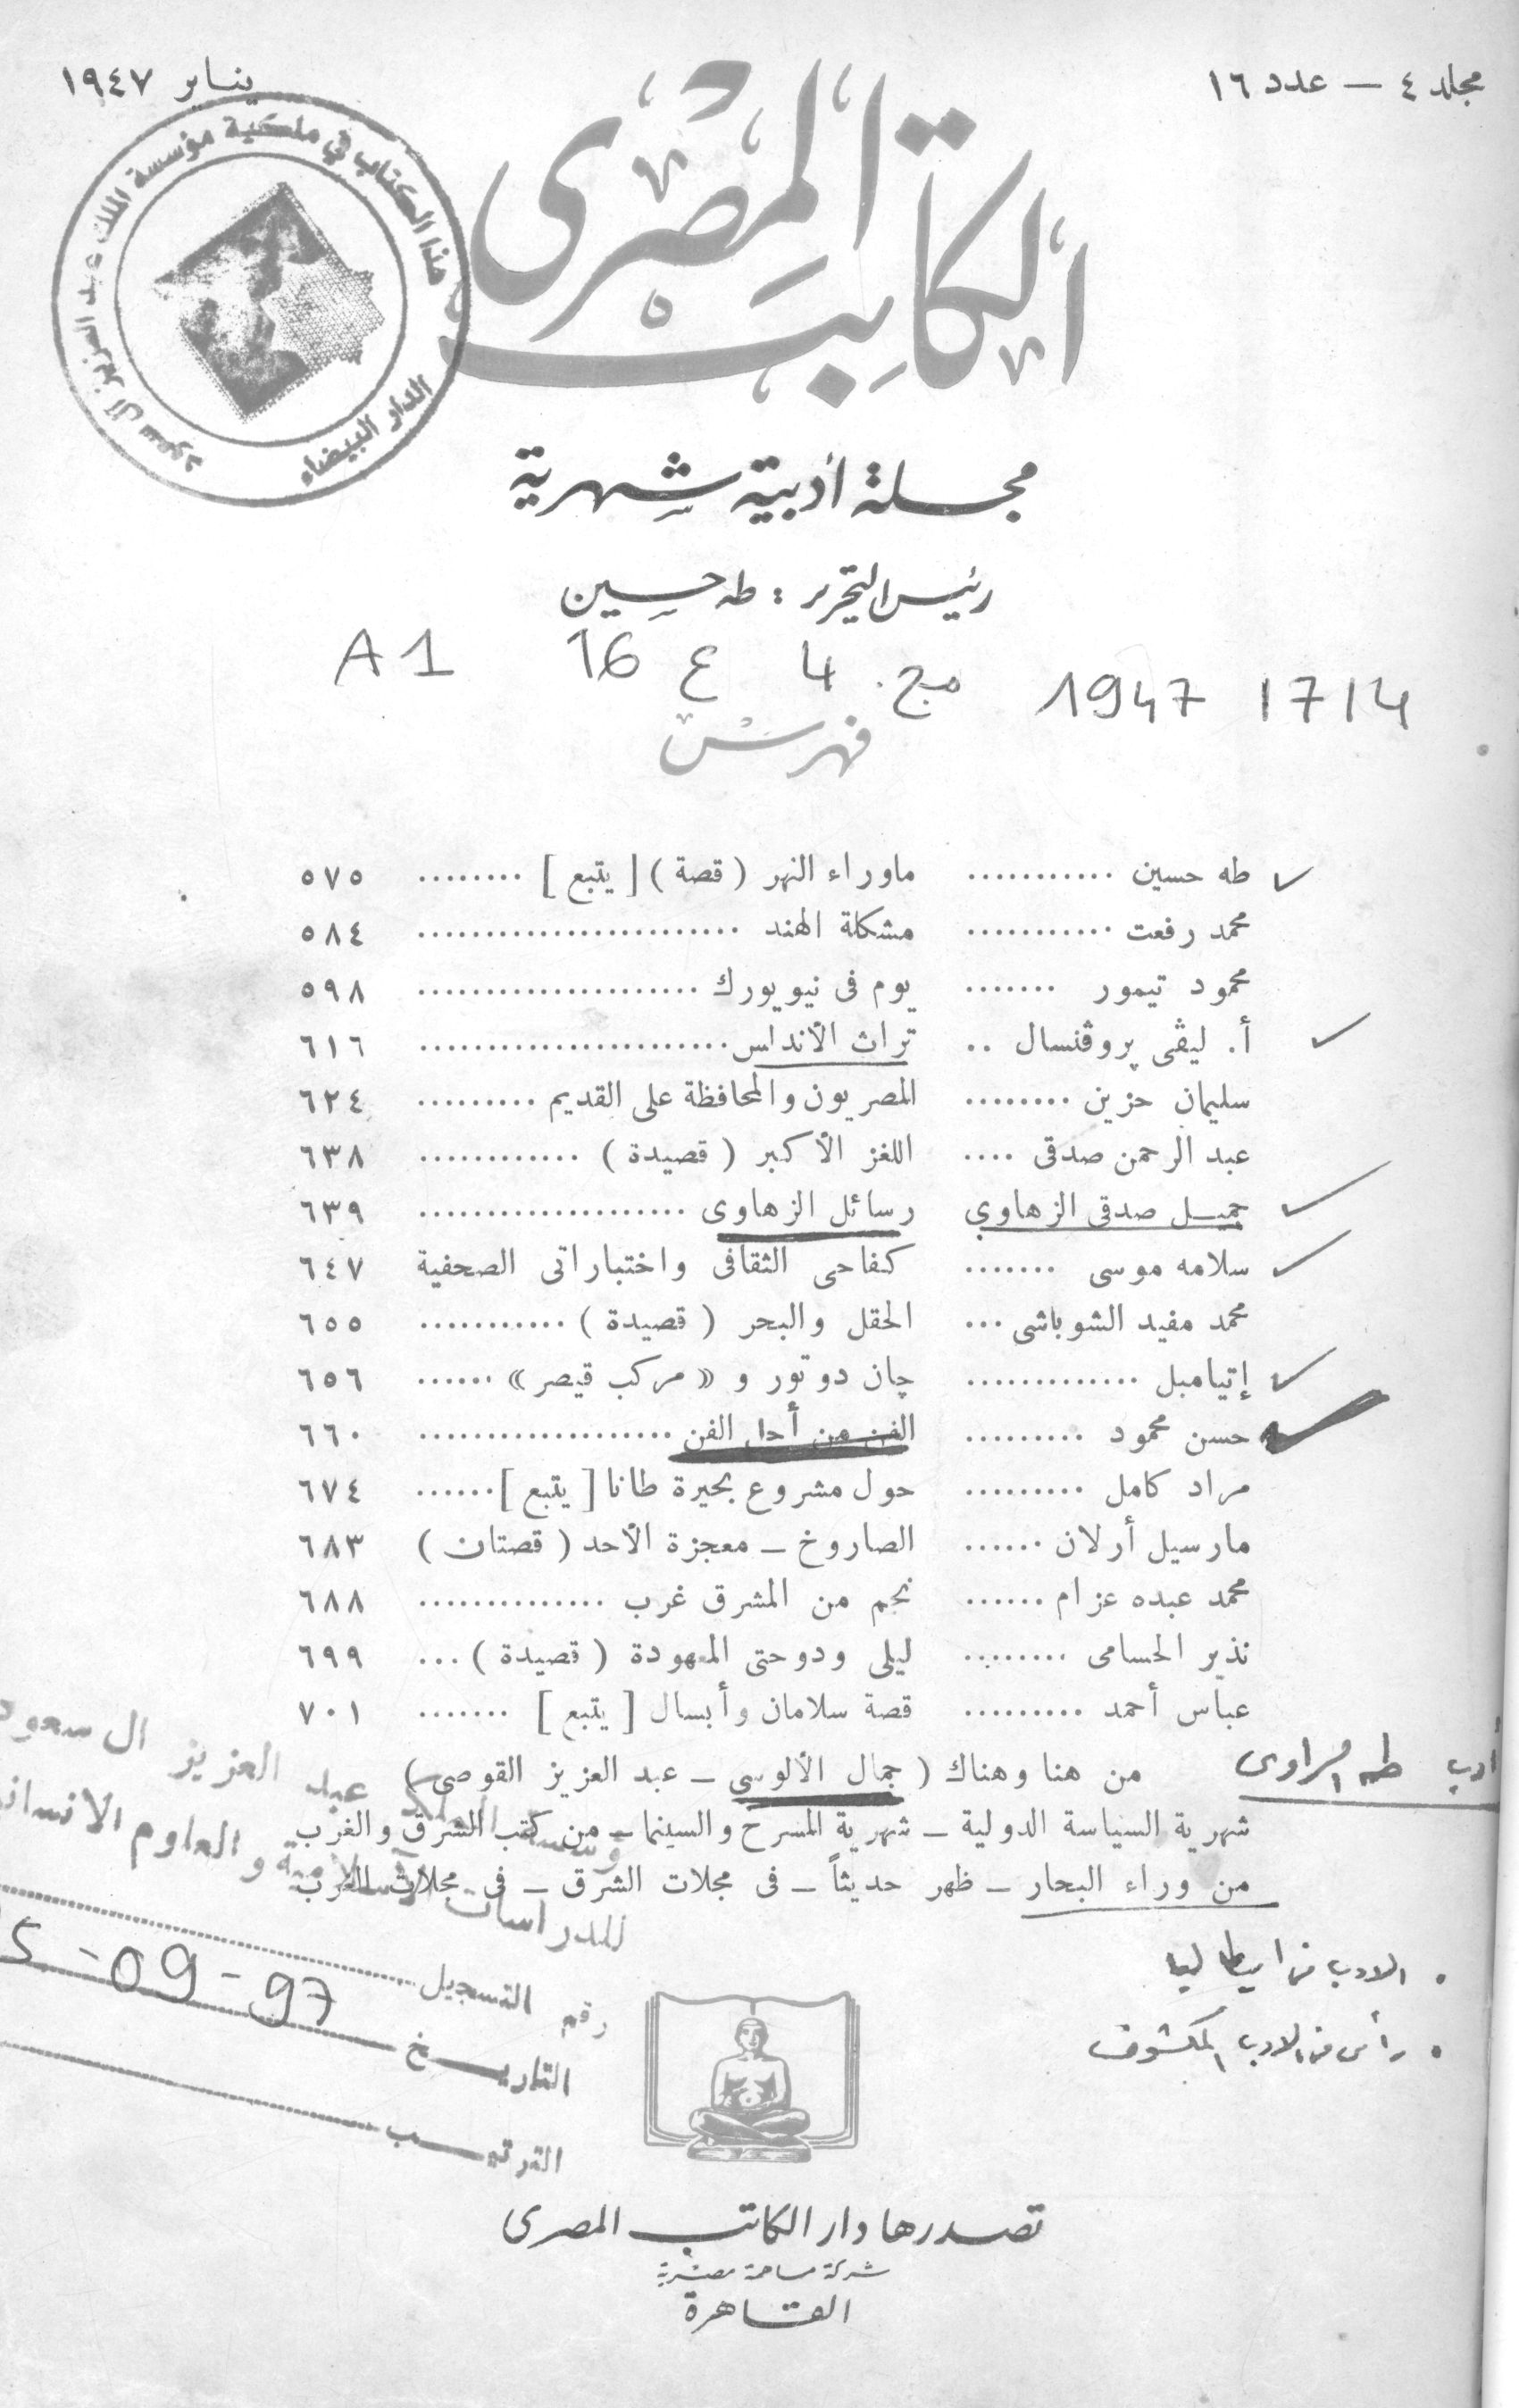 مجلد ٤ — عدد ١٦
يناير ١٩٤٧
الكاتب المصرى
هذا الكتاب في ملكية مؤسسة الملك عبد العزيز آل سعود
الدار البيضاء
مجلة أدبية شهرية
رئيس التحرير : طه حسين
1714 1947 مج. 4 ع 16 A1
فهرس
طه حسين ........... ماوراء النهر ( قصة ) [ يتبع ] ........ ٥٧٥
محمد رفعت ........... مشكلة الهند ........................ ٥٨٤
محمود تيمور ....... يوم فى نيويورك ..................... ٥٩٨
أ. ليڤى پروڤنسال .. تراث الأندلس ....................... ٦١٦
سليمان حزين ........ المصريون والمحافظة على القديم ......... ٦٢٤
عبد الرحمن صدقى .... اللغز الأكبر ( قصيدة ) ............ ٦٣٨
جميل صدقى الزهاوي رسائل الزهاوى .................... ٦٣٩
سلامه موسى ....... كفاحى الثقافى واختباراتى الصحفية ٦٤٧
محمد مفيد الشوباشى ... الحقل والبحر ( قصيدة ) ........... ٦٥٥
إتيامبل ............. چان دوتور و « مركب قيصر » ...... ٦٥٦
حسن محمود ......... الفن من أجل الفن ................... ٦٦٠
مراد كامل ......... حول مشروع بحيرة طانا [ يتبع ] ...... ٦٧٤
مارسيل أرلان ...... الصاروخ — معجزة الأحد ( قصتان ) ٦٨٣
محمد عبده عزام ...... نجم من المشرق غرب .............. ٦٨٨
نذير الحسامى ........ ليلى ودوحتى المهودة ( قصيدة ) ... ٦٩٩
عباس أحمد ......... قصة سلامان وأبسال [ يتبع ] ....... ٧٠١
من هنا وهناك ( جمال الألوسى — عبد العزيز القوصى )
أدب طه الراوى
شهرية السياسة الدولية — شهرية المسرح والسينما — من كتب الشرق والغرب
من وراء البحار — ظهر حديثاً — فى مجلات الشرق — فى مجلات الغرب
عبد العزيز ال سعود
للدراسات الاسلامية والعلوم الانسانية
رقم التسجيل
التاريخ 97-09-
الترتيب
الادب في ايطاليا
المكشوف
تصدرها دار الكاتب المصرى
شركة مساهمة مصرية
القاهرة